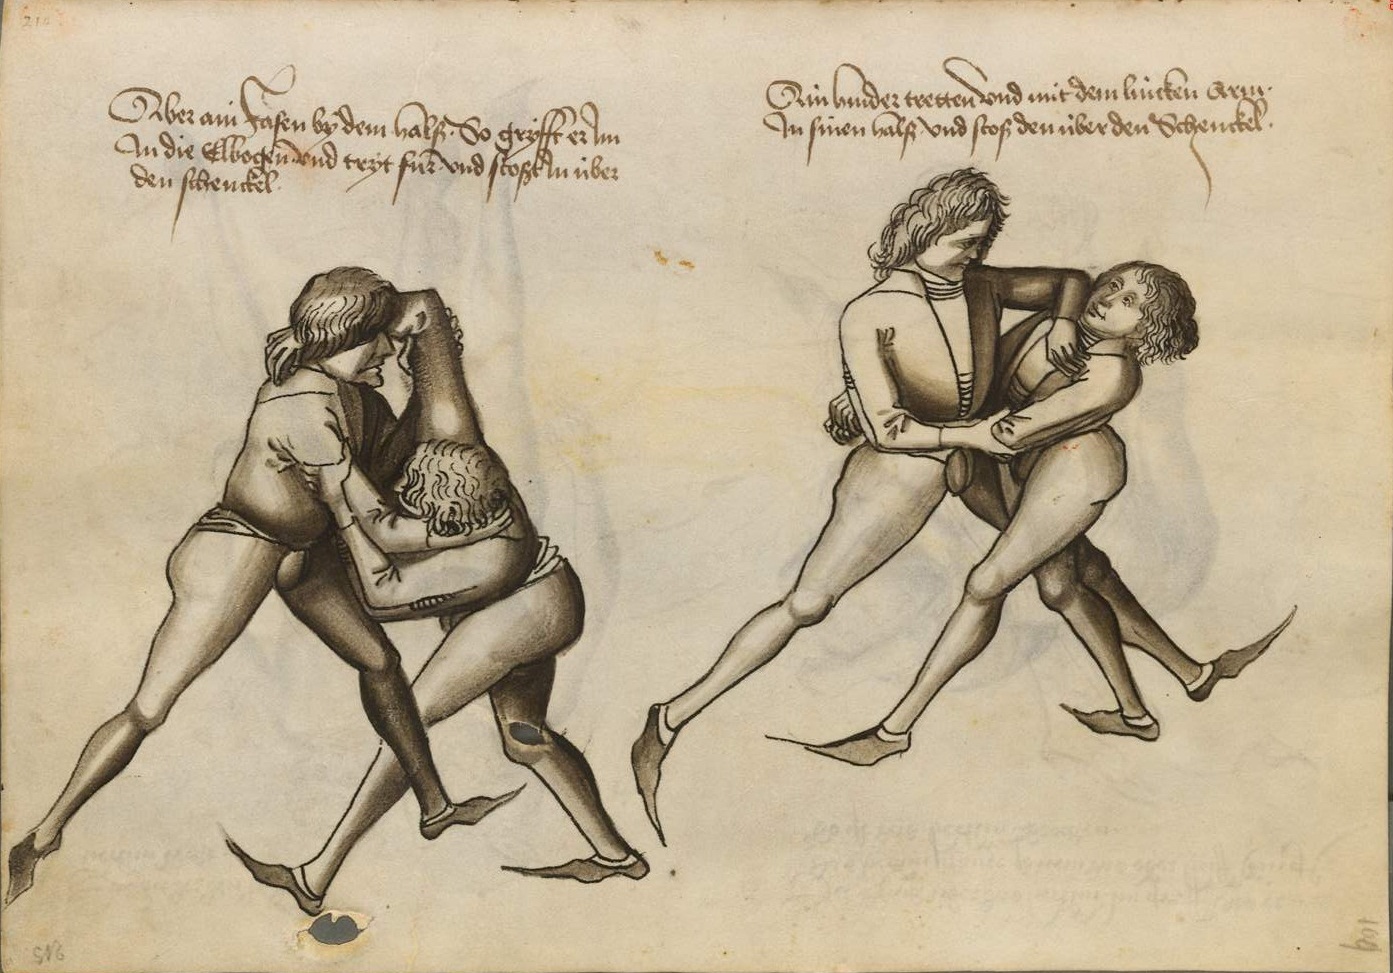 Aber ain fassen by dem halß. So gryfft er Im
An die Elbogen vnd tryt für vnd stoßt In über
den schenckel.
Ain hinder tretten vnd mit dem lincken Arm.
In sinen halß vnd stoß den über den Schenckel.
109